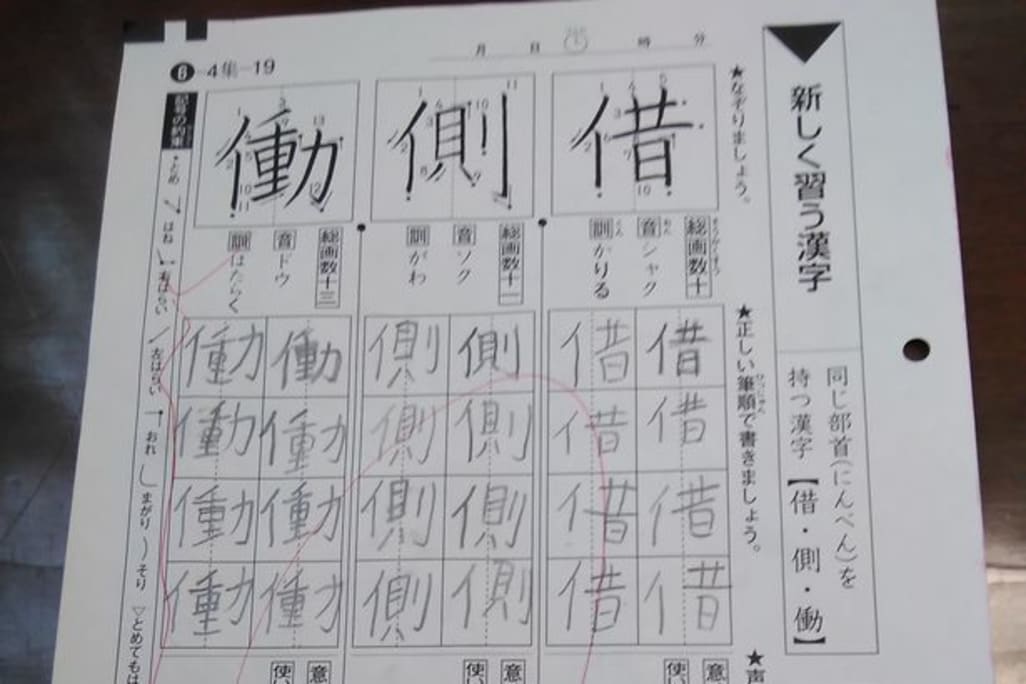 新しく習う漢字
同じ部首(にんべん)を
持つ漢字【借・側・働】
月 日 時 分
6-4集-19
★なぞりましょう。
借
側
働
総画数十
音シャク
訓かりる
総画数十一
音ソク
訓がわ
総画数十三
音ドウ
訓はたらく
★正しい筆順で書きましょう。
借 借
借 借
借 借
借 借
側 側
側 側
側 側
側 側
働 働
働 働
働 働
働 働
記号の約束
とめ
はね
右はらい
左はらい
おれ
まがり
そり
▽とめてもは
★声
意
使い
意
使い
意
使い